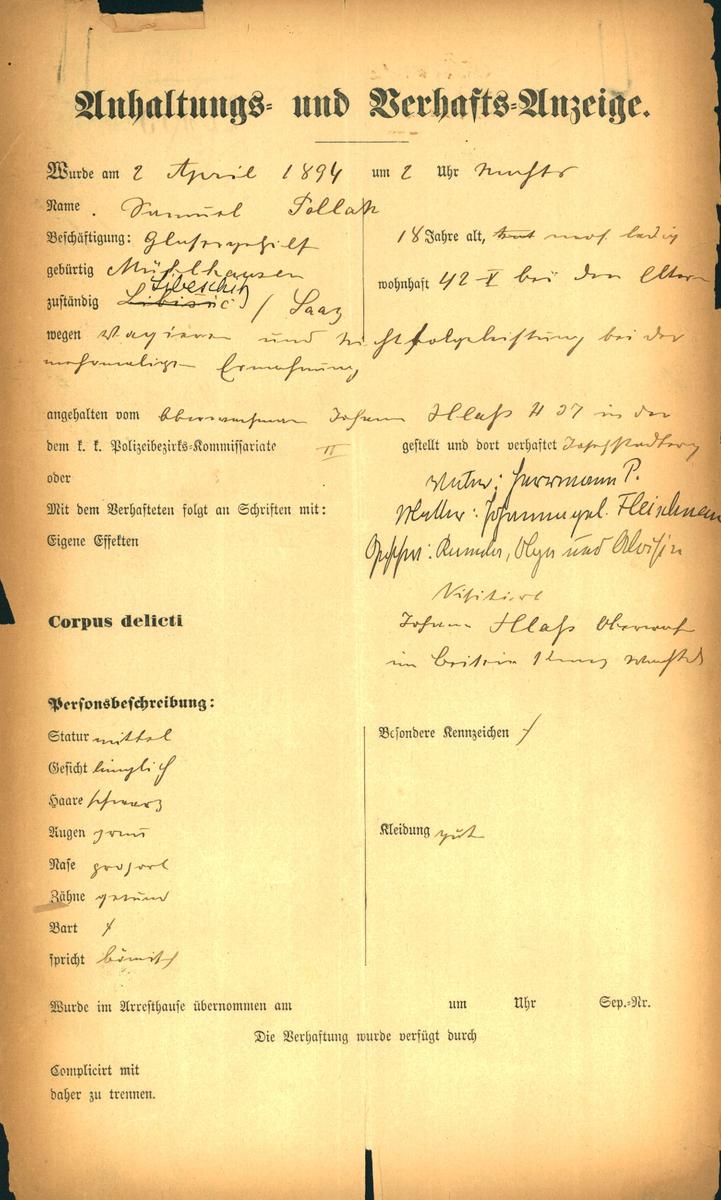 Anhaltungs- und Verhafts-Anzeige.
Wurde am 2 April 1894 um 2 Uhr Nachts
Name Samuel Pollak
Beschäftigung: Glasergehilf
18 Jahre alt, mos. ledig
gebürtig Mühlhausen
wohnhaft 42-V bei den Eltern
Libeschitz
zuständig Libišic / Saaz
wegen Vagieren und Nichtfolgeleistung bei der
mehrmaligen Ermahnung
angehalten vom Oberwachmann Johann Hlass # 37 in der
dem k. k. Polizeibezirks-Kommissariate II gestellt und dort verhaftet Josefstadt
oder
Vater: Herrmann P.
Mit dem Verhafteten folgt an Schriften mit:
Mutter: Johanna gel. Fleischmann
Eigene Effekten
Geschw: und
Visitirt
Corpus delicti
Johann Hlass Oberwach
im Beisein
Personsbeschreibung:
Statur mittel
Besondere Kennzeichen /
Gesicht länglich
Haare schwarz
Augen grau
Kleidung gut
Nase proport
Zähne gesund
Bart /
spricht böhmisch
Wurde im Arresthause übernommen am um Uhr Sep.-Nr.
Die Verhaftung wurde verfügt durch
Complicirt mit
daher zu trennen.